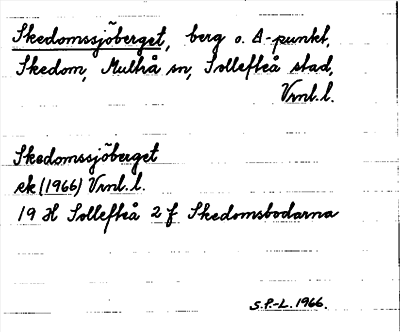 Skedomssjöberget, berg o. Δ-punkt,
Skedom, Multrå sn, Sollefteå stad,
Vrnl.l.
Skedomssjöberget
ek (1966) Vrnl.l.
19 H Sollefteå 2 f Skedomsbodarna
S.P.-L. 1966.